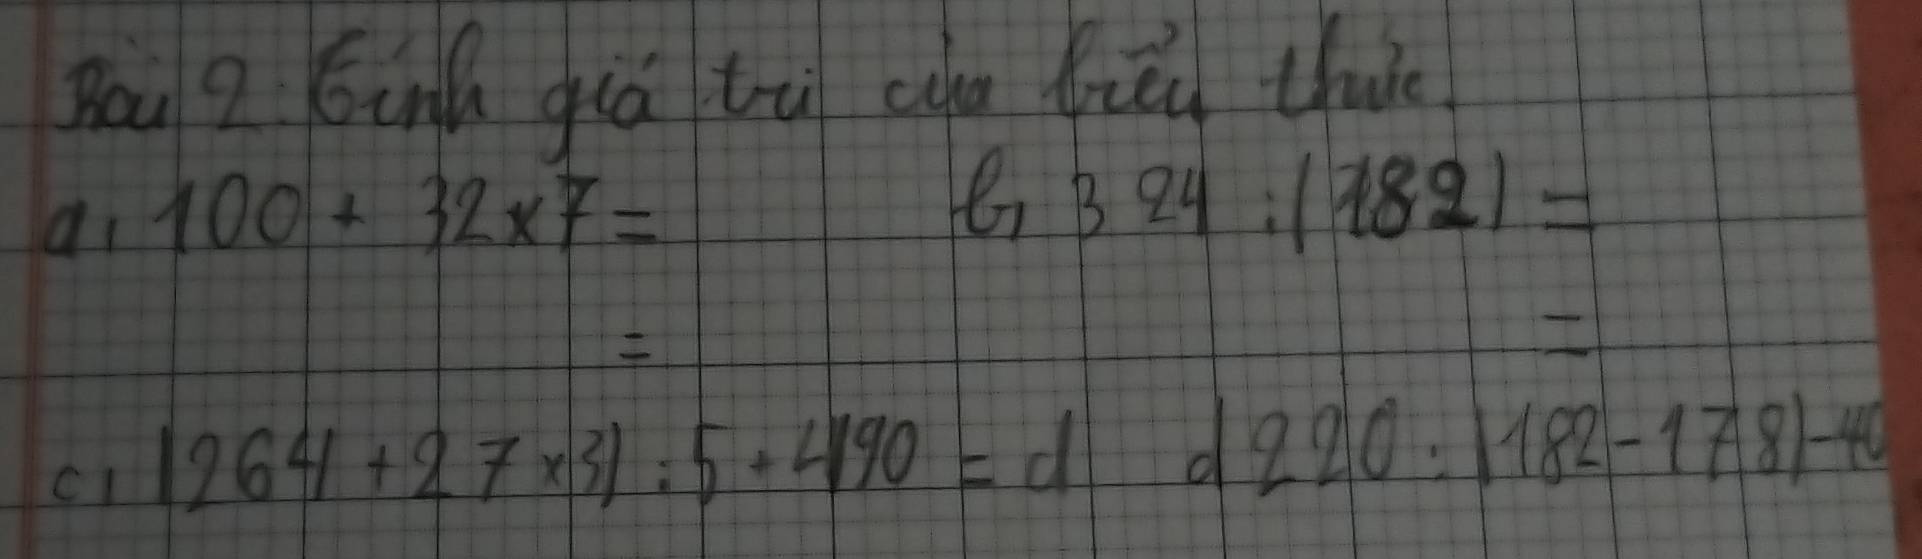 Bài 2. Tính giá trị của biểu thức
a, 100 + 32 x 7 = b, 324 : (182) =
= =
c, (264 + 27 x 3) : 5 + 490 = d d 220 : (182 - 178) - 40